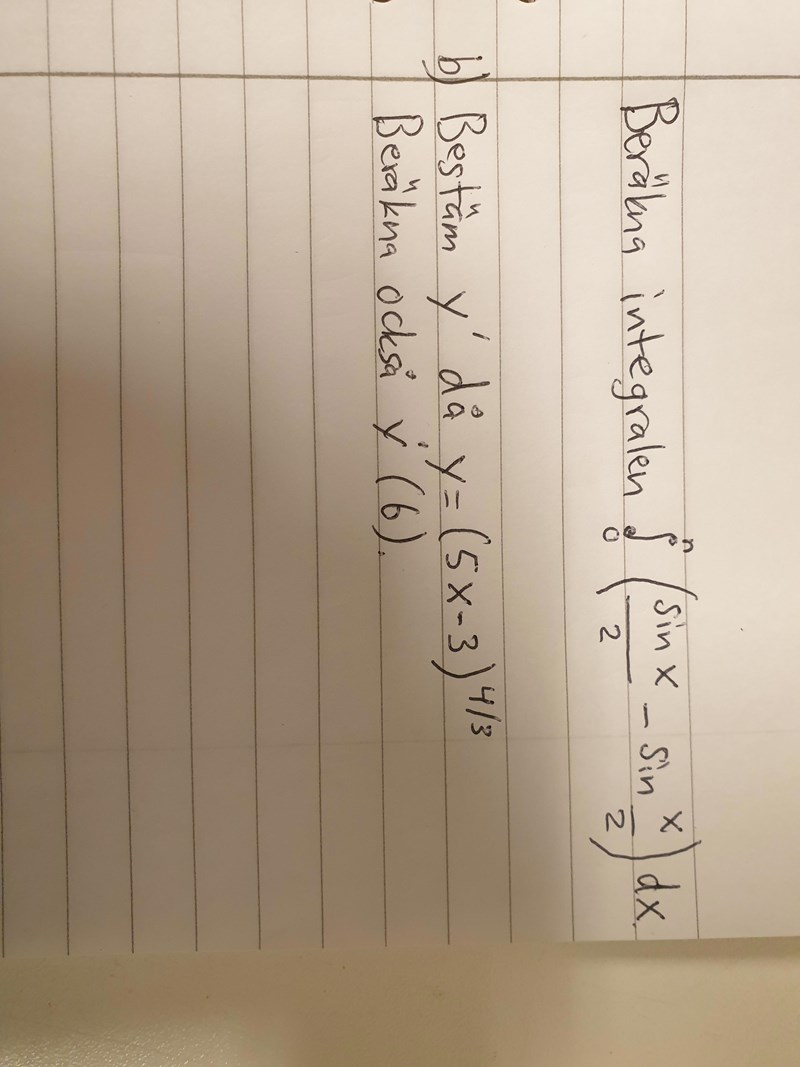 Beräkna integralen ∫₀ⁿ (sin x / 2 - sin x/2) dx.
b) Bestäm y' då y = (5x-3)^4/3
Beräkna också y'(6).